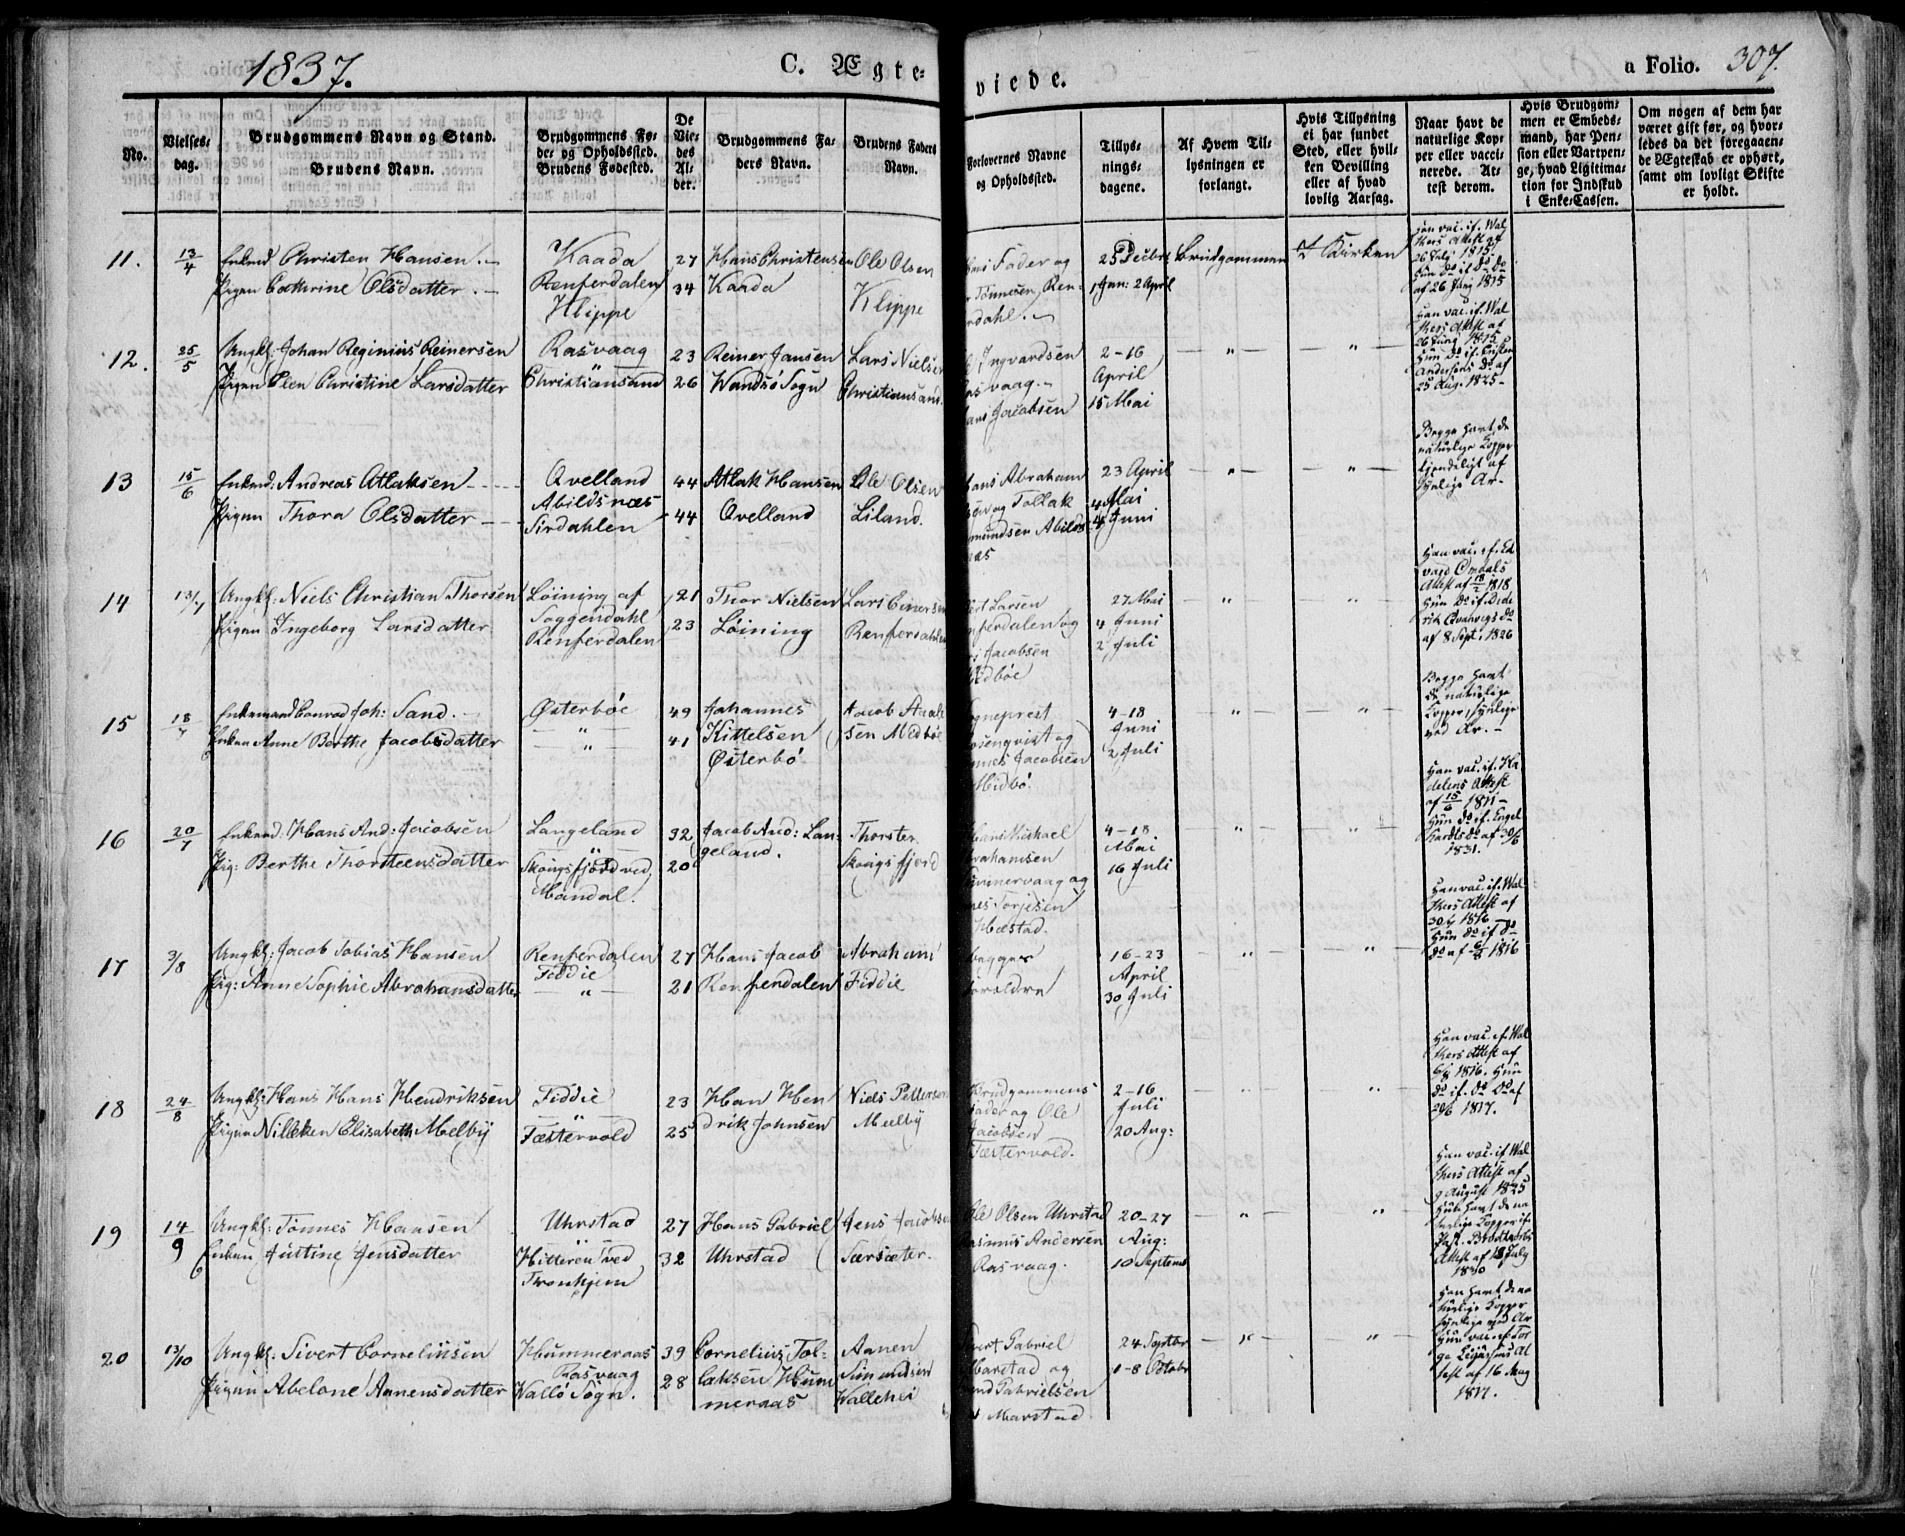 1837.
C. Ægte-
viede.
a Folio. 307.
No.
Vielses-
dag.
Brudgommens Navn og Stand.
Brudens Navn.
Brudgommens Fø-
de- og Opholdssted.
Brudens Fødested.
De
Vie-
des
Al-
der.
Brudgommens Fa-
ders Navn.
Brudens Faders
Navn.
Forlovernes Navne
og Opholdssted.
Tillys-
nings-
dagene.
Af Hvem Til-
lysningen er
forlangt.
Hvis Tillysning
ei har fundet
Sted, eller hvil-
ken Bevilling
eller af hvad
lovlig Aarsag.
Naar havt de
naturlige Kop-
per eller vacci-
nerede. At-
test derom.
Hvis Brudgom-
men er Embeds-
mand, har Pen-
sion eller Vartpen-
ge, hvad Ligitima-
tion for Indskud
i Enke-Cassen.
Om nogen af dem har
været gift før, og hvor-
ledes da det foregaaen-
de Ægteskab er ophørt,
samt om lovligt Skifte
er holdt.
11.
13/4
Enkmd Christen Hansen.
Pigen Cathrine Olsdatter.
Kaada
Renferdalen
Klippe
27
34
Hans Christensen
Kaada
Ole Olsen
Klippe
Fader og
Tønnesen Ren-
rdahl.
25 Decbr
1 Jan: 2 April
Brudgommen
I Kirken
Han vac. if. Wal
kers Attest af
26 July 1815
Hun do if do do
af 26 Juny 1815
12.
25/5
Ungkl: Johan Reginius Reinersen
Pigen Elen Christine Larsdatter
Rasvaag
Christiansand
23
26
Reiner Jansen
Wandsö Sogn
Lars Nielsen
Christiansand.
Ingvardsen
asvaag.
ans Jacobsen
2-16
April
15 Mai
- " -
- " -
Han vac. if. Wal
kers Attest af
26 Juny 1815
Hun do if.
Andersens do af
25 Aug. 1825
13
15/6
Enkmd: Andreas Atlaksen
Pigen Thora Olsdatter
Qvelland
Abildsnæs
Sirdahlen
44
44
Atlak Hansen
Qvelland
Ole Olsen
Liland.
ans Abraham
sen og Tollak
mundsen Abilds
næs
23 April
4 Mai
4 Juni
- " -
- " -
Begge havt de
naturlige Kopper
kjendeligt af
synlige Ar.
14
13/7
Ungkl: Niels Christian Thorsen
Pigen Ingeborg Larsdatter
Löining af
Soggendahl
Renferdalen
21
23
Thor Nielsen
Löining
Lars Einersen
Renferdahlen
Larsen
nferdalen og
Jacobsen
idböe
27 Mai
4 Juni
2 Juli
- " -
- " -
Han vac. if. Ed
vard Omdals
Attest af 1818
Hun do if. Dide
rik Qvanvigs do
af 8 Sept. 1826
15
18/7
Enkemand Conrad Joh: Sand.
Enken Anne Berthe Jacobsdatter
Østerböe
"
"
49
41
Johannes
Kittelsen
Østerbö
Jacob Aanen
sen Midböe
ogneprest
osenqvist og
nnes Jacobsen
Midbö.
4-18
Juni
2 Juli
"
"
Begge havt
de naturlige
Kopper, synlige
ved Ar.
16
20/7
Enkemd: Hans And: Jacobsen
Pig: Berthe Thorsteensdatter
Langeland
"
Skougsfjord ved
Mandal.
32
20
Jacob And: Lan-
geland.
Thorster
Skougsfjord
Hans Michael
brahamsen
nnervaag og
nes Torjesen
Hæstad.
4-18
Mai
16 Juli
"
"
Han vac. if.
delens Attest
af 15/6 1811
Hun do if. Engel
hardts do af 30/6
1831.
17
3/8
Ungkl: Jacob Tobias Hansen
Pig: Anne Sophie Abrahamsdatter
Renferdalen
Fiddie
"
27
21
Hans Jacob
Renferdalen
Abraham
Fiddie
begges
oræeldre
16-23
April
30 Juli
"
"
Han vac. if. Wal
kers Attest af
1816
Hun do if do
do af 6/8 1816
18
24/8
Ungkl: Hans Hans Hendriksen
Pigen Nilleken Elisabeth Melby
Fiddie
"
Fæstervold
23
25
Han Hen
drik Johnsen
Niels Pettersen
Melby
Brudgommens
Fader og Ole
Jacobsen
Fæstervold.
2-16
Juli
20 Aug:
"
"
Han vac. if. Wal
kers Attest af
6/8 1816. Hun
do if. do do af
1817.
19
14/9
Ungkl: Tönnes Hansen
Enken Justine Jensdatter
Uhrstad
Hitteröe ved
Tronhjem
27
32
Hans Gabriel
Uhrstad
Jens Jacobsen
Særsæter.
Ole Olsen Uhrstad
asmus Andersen
Rasvaag.
20-27
Aug:
10 Septembr
"
"
Han vac. if Wal
kers Attest af
9 August 1825
Hun havt de na
turlige Kopper if.
Attest af 18 July
1830
20
13/10
Ungkl. Sivert Corneliusen
Pigen Abelone Aanensdatter
Hummeraas
Rasvaag
Vallö Sogn.
39
28
Cornelius Tol-
laksen Hum
meraas
Aanen
Simundsen
Vallehei
vert Gabriel
Marstad og
nd Gabrielsen
Marstad
24 Septbr
1-8 Octobr
"
"
Han havt de na
turlige Kopper
synlige ved Ar
Hun vac. if. Tor
test af 16 May
1817.